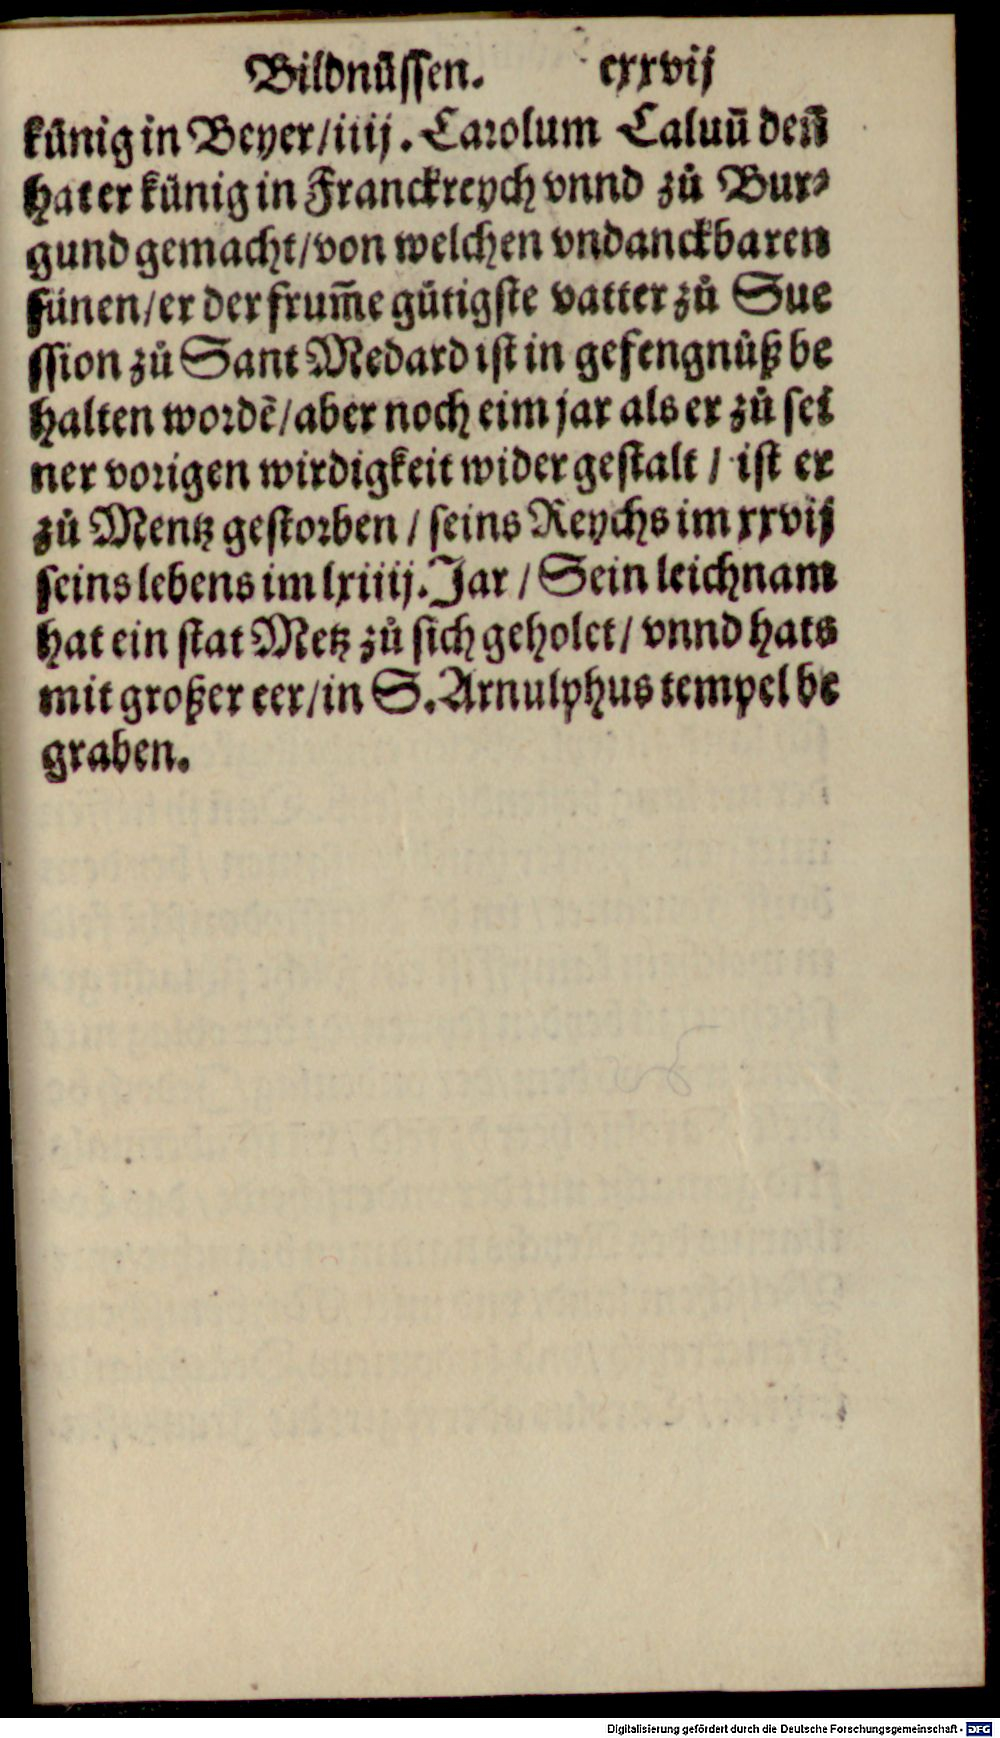 Bildnüssen. cxxvij
künig in Beyer/iiij. Carolum Caluū deñ
hat er künig in Franckreych vnnd zů Bur⸗
gund gemacht/von welchen vndanckbaren
sünen/er der frum̄e gütigste vatter zů Sue
ssion zů Sant Medard ist in gefengnüß be
halten wordē/aber noch eim jar als er zů sei
ner vorigen wirdigkeit wider gestalt / ist er
zů Mentz gestorben / seins Reychs im xxvij
seins lebens im lxiiij. Jar / Sein leichnam
hat ein stat Metz zů sich geholet/ vnnd hats
mit großer eer/in S. Arnulphus tempel be
graben.
Digitalisierung gefördert durch die Deutsche Forschungsgemeinschaft - DFG